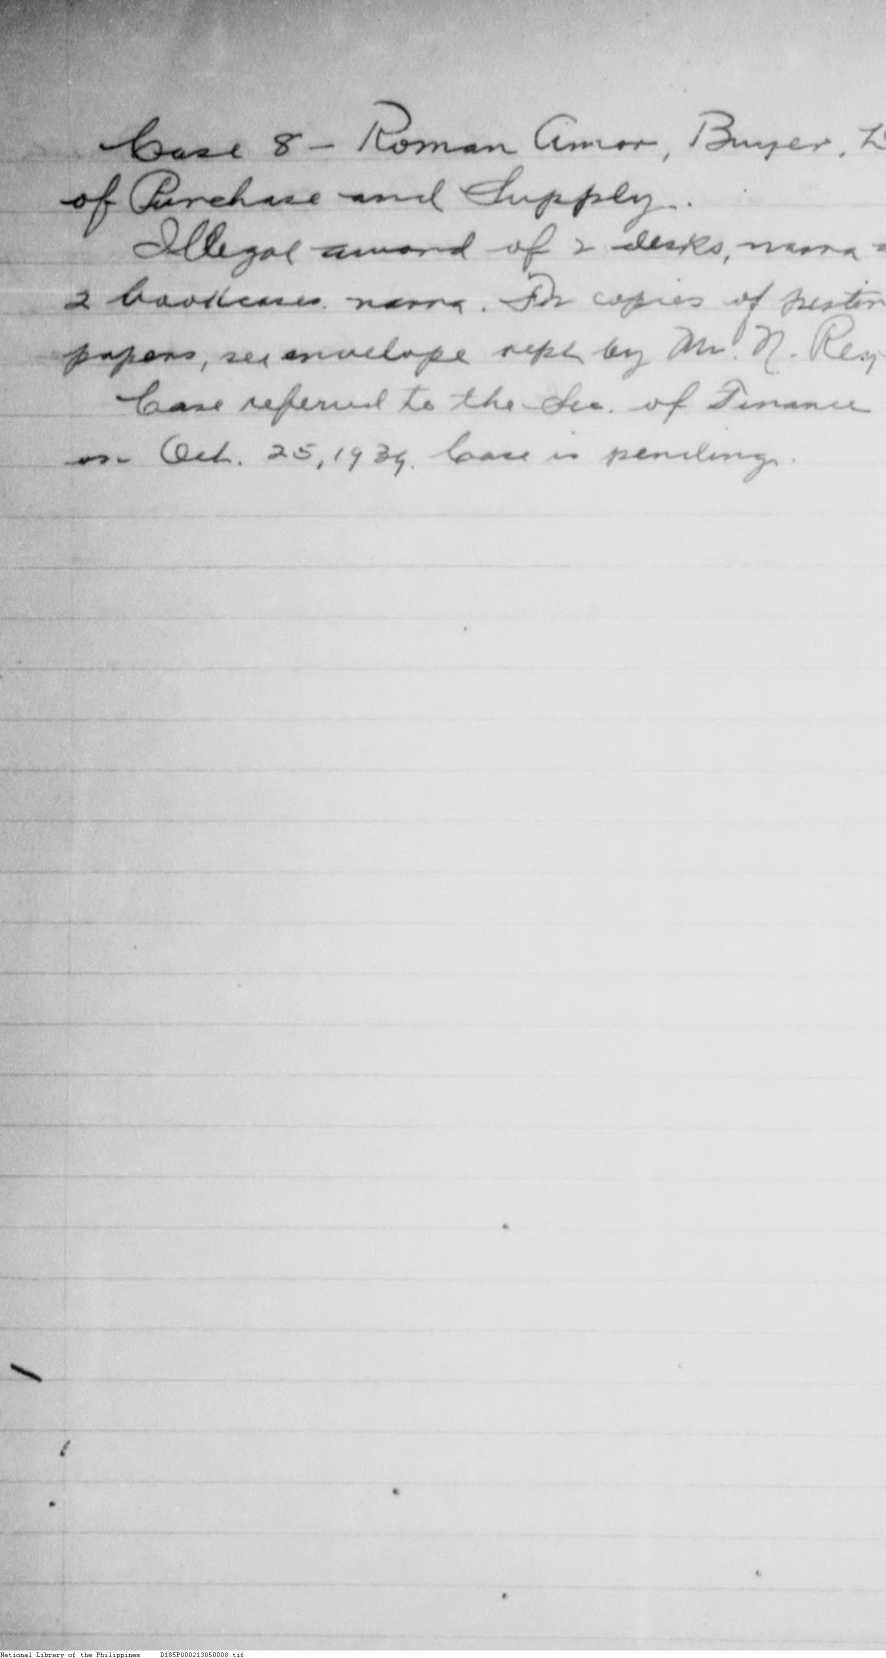 Case 8 – Roman Amor, Buyer,
of Purchase and Supply.
Illegal award of 2 desks, narra
2 bookcases narra. For copies of
papers, see envelope kept by Mr. N.
Case referred to the Sec. of Finance
on Oct. 25, 1939. Case is pending.
National Library of the Philippines D185P000213050008.tif